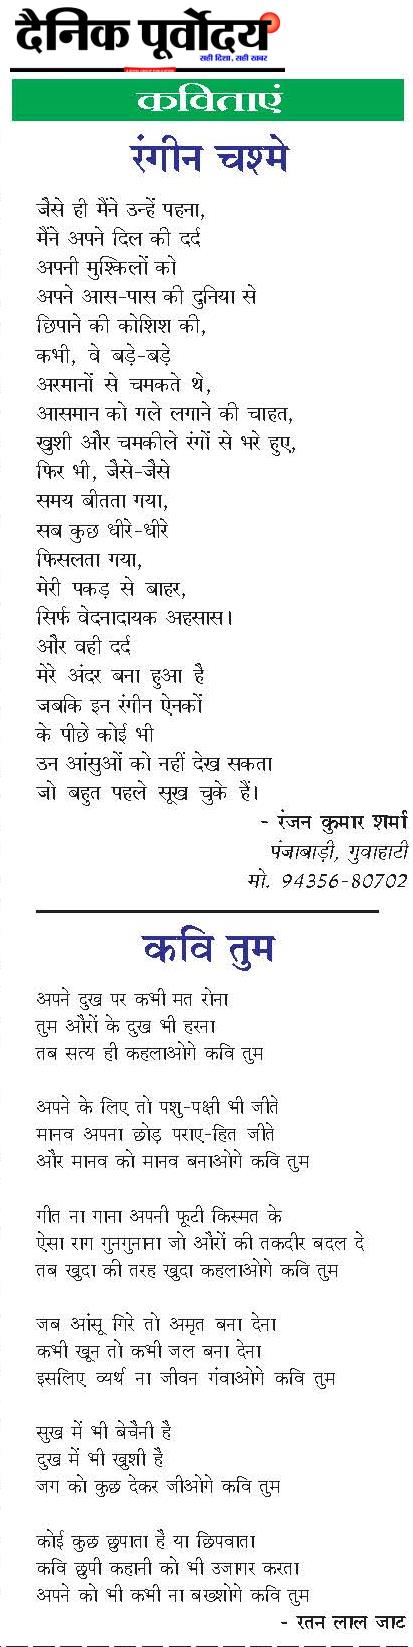 दैनिक पूर्वोदय
सही दिशा, सही खबर
कविताएं
रंगीन चश्मे
जैसे ही मैंने उन्हें पहना,
मैंने अपने दिल की दर्द
अपनी मुश्किलों को
अपने आस-पास की दुनिया से
छिपाने की कोशिश की,
कभी, वे बड़े-बड़े
अरमानों से चमकते थे,
आसमान को गले लगाने की चाहत,
खुशी और चमकीले रंगों से भरे हुए,
फिर भी, जैसे-जैसे
समय बीतता गया,
सब कुछ धीरे-धीरे
फिसलता गया,
मेरी पकड़ से बाहर,
सिर्फ वेदनादायक अहसास।
और वही दर्द
मेरे अंदर बना हुआ है
जबकि इन रंगीन ऐनकों
के पीछे कोई भी
उन आंसुओं को नहीं देख सकता
जो बहुत पहले सूख चुके हैं।
- रंजन कुमार शर्मा
पंजाबाड़ी, गुवाहाटी
मो. 94356-80702
कवि तुम
अपने दुख पर कभी मत रोना
तुम औरों के दुख भी हरना
तब सत्य ही कहलाओगे कवि तुम
अपने के लिए तो पशु-पक्षी भी जीते
मानव अपना छोड़ पराए-हित जीते
और मानव को मानव बनाओगे कवि तुम
गीत ना गाना अपनी फूटी किस्मत के
ऐसा राग गुनगुनाना जो औरों की तकदीर बदल दे
तब खुदा की तरह खुदा कहलाओगे कवि तुम
जब आंसू गिरे तो अमृत बना देना
कभी खून तो कभी जल बना देना
इसलिए व्यर्थ ना जीवन गंवाओगे कवि तुम
सुख में भी बेचैनी है
दुख में भी खुशी है
जग को कुछ देकर जीओगे कवि तुम
कोई कुछ छुपाता है या छिपवाता
कवि छुपी कहानी को भी उजागर करता
अपने को भी कभी ना बख्शोगे कवि तुम
- रतन लाल जाट